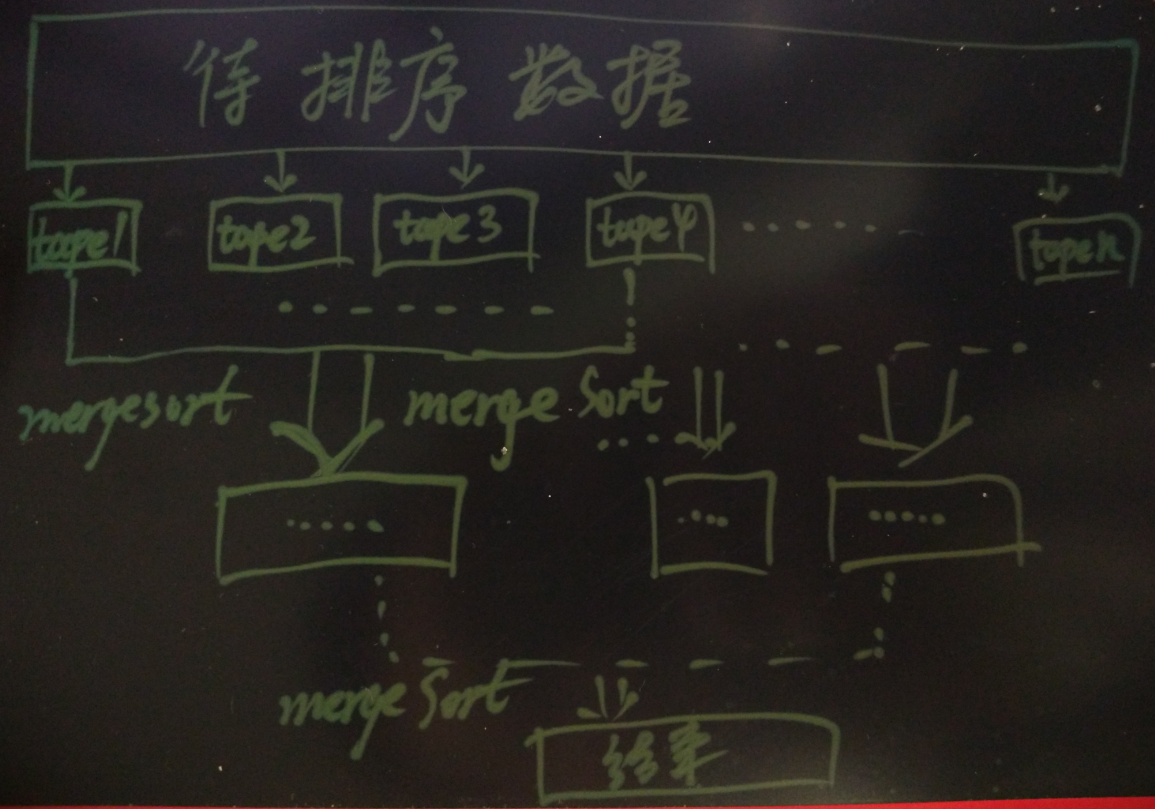 待排序数据
tape1 tape2 tape3 tape4 ...... tapen
mergesort mergeSort
mergeSort
结果